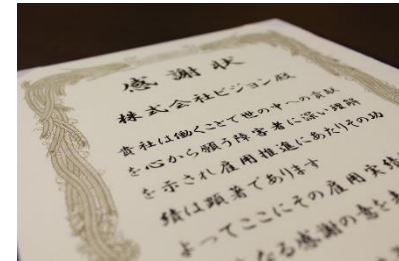 感謝状
株式会社ビジョン殿
貴社は働くことで世の中への貢献
を心から願う障害者に深い理解
を示され雇用推進にあたりその功
績は顕著であります
よってここにその雇用実績
なる感謝の意を表